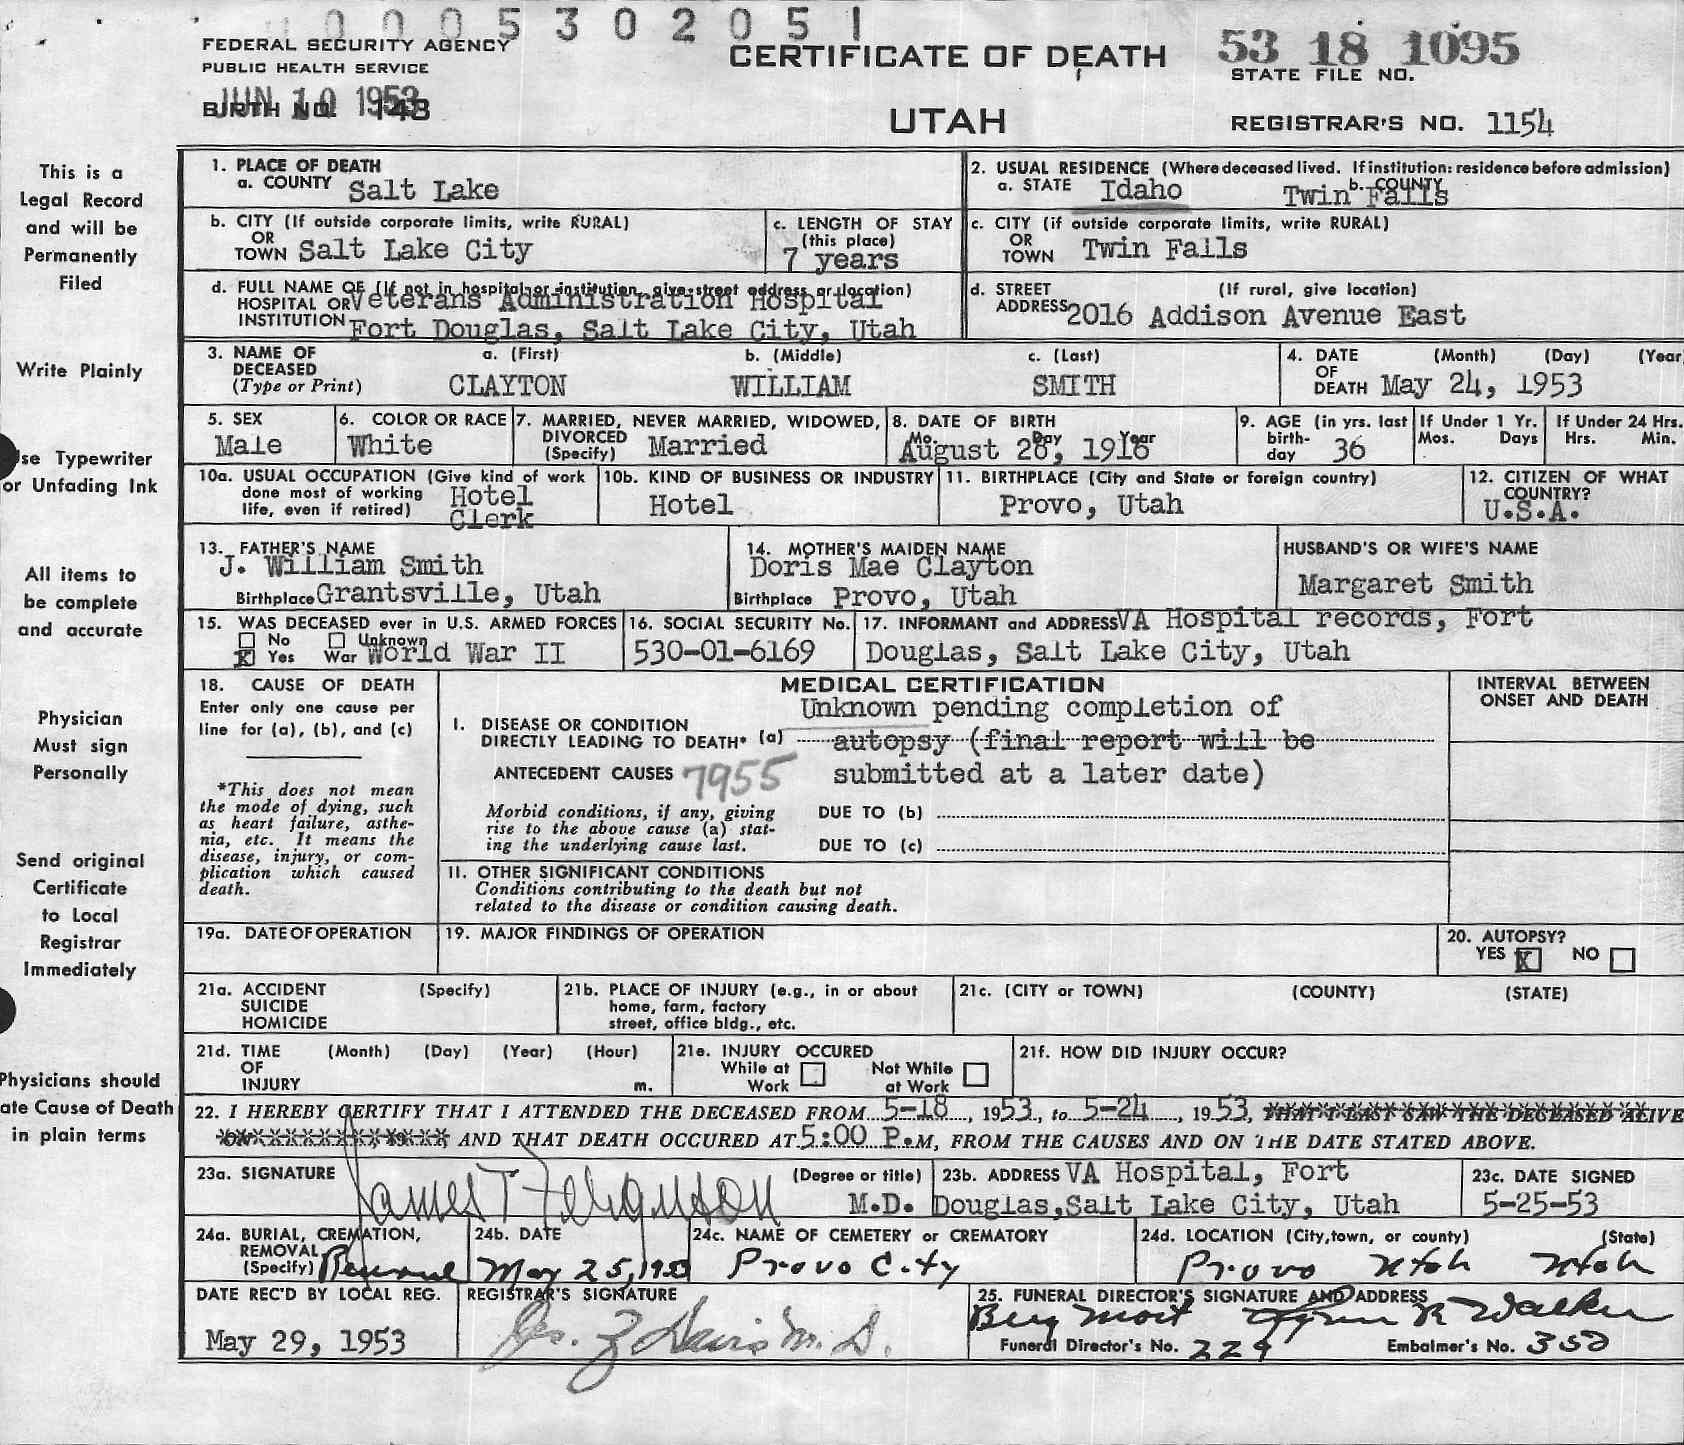 0005302051
FEDERAL SECURITY AGENCY
PUBLIC HEALTH SERVICE
JUN 10 1953
BIRTH NO. 143
CERTIFICATE OF DEATH
UTAH
53 18 1095
STATE FILE NO.
REGISTRAR'S NO. 1154
This is a
Legal Record
and will be
Permanently
Filed
Write Plainly
se Typewriter
or Unfading Ink
All items to
be complete
and accurate
Physician
Must sign
Personally
Send original
Certificate
to Local
Registrar
Immediately
Physicians should
ate Cause of Death
in plain terms
1. PLACE OF DEATH
a. COUNTY Salt Lake
2. USUAL RESIDENCE (Where deceased lived. If institution: residence before admission)
a. STATE Idaho b. COUNTY Twin Falls
b. CITY (If outside corporate limits, write RURAL)
OR
TOWN Salt Lake City
c. LENGTH OF STAY
(this place)
7 years
c. CITY (if outside corporate limits, write RURAL)
OR
TOWN Twin Falls
d. FULL NAME OF (If not in hospital or institution, give street address or location)
HOSPITAL OR Veterans Administration Hospital
INSTITUTION Fort Douglas, Salt Lake City, Utah
d. STREET (If rural, give location)
ADDRESS 2016 Addison Avenue East
3. NAME OF a. (First) b. (Middle) c. (Last)
DECEASED
(Type or Print) CLAYTON WILLIAM SMITH
4. DATE (Month) (Day) (Year
OF
DEATH May 24, 1953
5. SEX
Male
6. COLOR OR RACE
White
7. MARRIED, NEVER MARRIED, WIDOWED,
DIVORCED
(Specify) Married
8. DATE OF BIRTH
Mo. Day Year
August 28, 1916
9. AGE (in yrs. last
birth-
day 36
If Under 1 Yr.
Mos. Days
If Under 24 Hrs.
Hrs. Min.
10a. USUAL OCCUPATION (Give kind of work
done most of working
life, even if retired) Hotel
Clerk
10b. KIND OF BUSINESS OR INDUSTRY
Hotel
11. BIRTHPLACE (City and State or foreign country)
Provo, Utah
12. CITIZEN OF WHAT
COUNTRY?
U.S.A.
13. FATHER'S NAME
J. William Smith
Birthplace Grantsville, Utah
14. MOTHER'S MAIDEN NAME
Doris Mae Clayton
Birthplace Provo, Utah
HUSBAND'S OR WIFE'S NAME
Margaret Smith
15. WAS DECEASED ever in U.S. ARMED FORCES
No Unknown
X Yes War World War II
16. SOCIAL SECURITY No.
530-01-6169
17. INFORMANT and ADDRESS VA Hospital records, Fort
Douglas, Salt Lake City, Utah
18. CAUSE OF DEATH
Enter only one cause per
line for (a), (b), and (c)
*This does not mean
the mode of dying, such
as heart failure, asthe-
nia, etc. It means the
disease, injury, or com-
plication which caused
death.
MEDICAL CERTIFICATION
Unknown pending completion of
I. DISEASE OR CONDITION
DIRECTLY LEADING TO DEATH* (a) autopsy (final report will be
ANTECEDENT CAUSES 7955 submitted at a later date)
Morbid conditions, if any, giving
rise to the above cause (a) stat-
ing the underlying cause last.
DUE TO (b)
DUE TO (c)
II. OTHER SIGNIFICANT CONDITIONS
Conditions contributing to the death but not
related to the disease or condition causing death.
INTERVAL BETWEEN
ONSET AND DEATH
19a. DATE OF OPERATION
19. MAJOR FINDINGS OF OPERATION
20. AUTOPSY?
YES X NO
21a. ACCIDENT (Specify)
SUICIDE
HOMICIDE
21b. PLACE OF INJURY (e.g., in or about
home, farm, factory
street, office bldg., etc.
21c. (CITY or TOWN) (COUNTY) (STATE)
21d. TIME (Month) (Day) (Year) (Hour)
OF
INJURY m.
21e. INJURY OCCURED
While at Work
Not While at Work
21f. HOW DID INJURY OCCUR?
22. I HEREBY CERTIFY THAT I ATTENDED THE DECEASED FROM 5-18, 1953, to 5-24, 1953, THAT I LAST SAW THE DECEASED ALIVE
ON AND THAT DEATH OCCURED AT 5:00 P.M, FROM THE CAUSES AND ON THE DATE STATED ABOVE.
23a. SIGNATURE (Degree or title)
James T Ferguson M.D.
23b. ADDRESS VA Hospital, Fort
Douglas, Salt Lake City, Utah
23c. DATE SIGNED
5-25-53
24a. BURIAL, CREMATION,
REMOVAL
(Specify) Removal
24b. DATE
May 25, 1953
24c. NAME OF CEMETERY or CREMATORY
Provo City
24d. LOCATION (City, town, or county) (State)
Provo Utah Utah
DATE REC'D BY LOCAL REG.
May 29, 1953
REGISTRAR'S SIGNATURE
Davis M. D.
25. FUNERAL DIRECTOR'S SIGNATURE AND ADDRESS
Berg Mort R Walker
Funeral Director's No. 229 Embalmer's No. 350